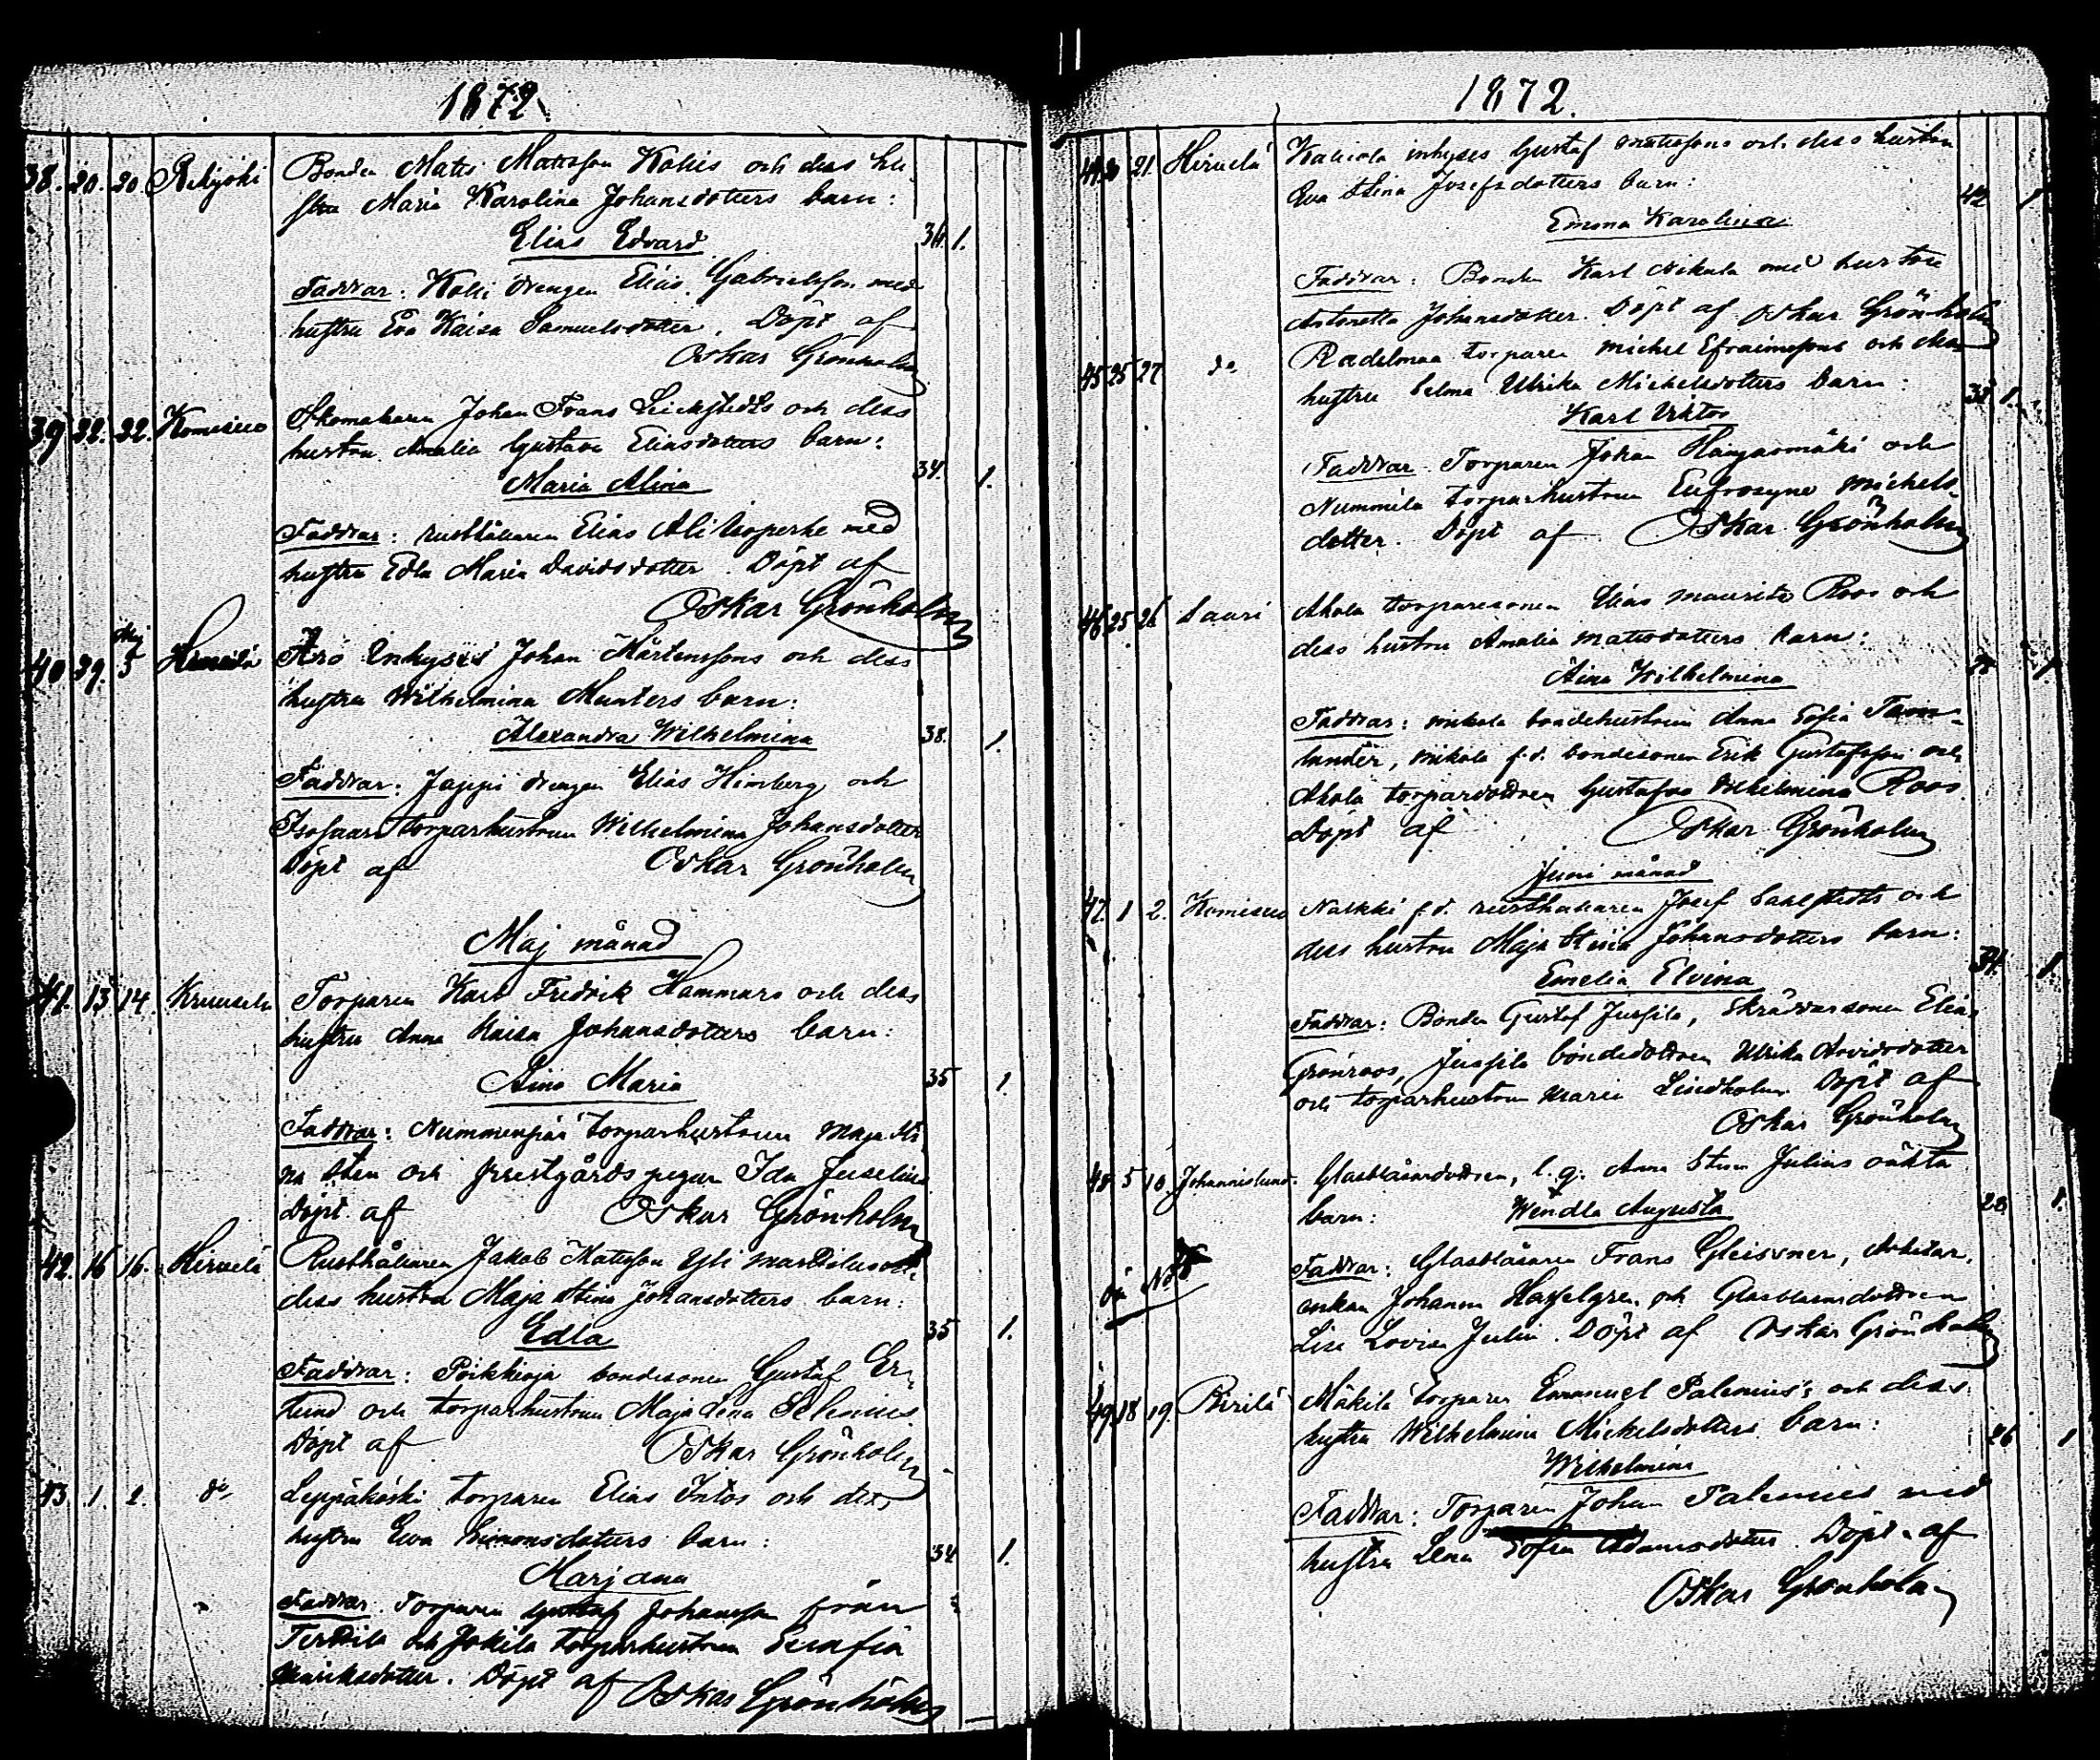 1872.
38. 20. 20. Rekijoki Bonden Matts Mattsson Kollis och dess hu
stru Maria Karolina Johansdotters barn:
Elias Edvard 36. 1.
Faddrar: Kolli drengen Elias Gabrielsson med
hustru Eva Kaisa Samuelsdotter. Döpt af
Oskar Grönholm
39 22. 22. Komisuo Skomakaren Johan Frans Leickstedts och dess
hustru Amalia Gustava Eliasdotters barn:
Maria Alina 34. 1.
Faddrar: rusthållaren Elias Ali Isoperhe med
hustru Edla Maria Davidsdotter. Döpt af
Oskar Grönholm
40 29. Maj 5 Inhyses Johan Mårtenssons och dess
hustru Wilhelmina Munters barn:
Alexandra Wilhelmina 38. 1.
Faddrar: Jappi drengen Elias Himberg och
Isosaari torparhustrun Wilhelmina Johansdotter
Döpt af Oskar Grönholm
Maj månad
41. 13 14. Kruusila Torparen Karl Fredrik Hammars och dess
hustru Anna Kaisa Johansdotters barn:
Aina Maria 35 1.
Faddrar: Nummenpää torparhustrun Maja Sti
na Sten och prestgårds pigan Ida Juselius
Döpt af Oskar Grönholm
42. 16 16. Hirvelä Rusthållaren Jakob Mattsson Yli och
dess hustru Maja Stina Johansdotters barn:
Edla 35 1.
Faddrar: Poikkioja bondesonen Gustaf Er
lund och torparhustrun Maja Lena Selenius
Döpt af Oskar Grönholm
43. 1. 2. do Leppäkoski torparen Elias Intos och dess
hustru Eva Simonsdotters barn:
Marjana 34 1.
Faddrar: Torparen Gustaf Johansson från
Terttilä och Jokila torparhustrun Serafia
Henriksdotter. Döpt af Oskar Grönholm
1872.
44. 20 21. Hirvelä inhyses Gustaf Mattssons och dess hustru
Eva Stina Josefsdotters barn:
42 1
Emma Karolina
Faddrar: Bonden Karl Mikola med hustru
Antonetta Johansdotter. Döpt af Oskar Grönholm
45 25 27 do Radelmaa torparen Michel Efraimssons och dess
hustru Selma Ulrika Michelsdotters barn:
Karl Viktor 33 1.
Faddrar: Torparen Johan Hangasmäki och
Nummila torparhustrun Eufrosyne Michels-
dotter. Döpt af Oskar Grönholm
46 25 26 Sauri Ahola torparesonen Elias Mauritz Roos och
dess hustru Amalia Mattsdotters barn:
Aina Wilhelmina 1.
Faddrar: Mikola bondehustrun Anna Sofia Tam-
lander, Mikola f.d. bondesonen Erik Gustafsson och
Ahola torpardottren Gustafva Wilhelmina Roos.
Döpt af Oskar Grönholm
Juni månad
47. 1 2. Komisuo Naskki f.d. rusthållaren Josef Sahlstedts och
dess hustru Maja Stina Johansdotters barn:
Emelia Elvina 34. 1.
Faddrar: Bonden Gustaf Jussila, Skräddarsonen Elias
Grönroos, Jussila bondedottren Ulrika Arvidsdotter
och torparhustrun Maria Lindholm. Döpt af
Oskar Grönholm
48 5 10 Johannislund. Glasblåsardottren, l.q. Anna Stina Julins oäkta
barn: Wendla Augusta 28 1.
Faddrar: Glasblåsaren Frans Gleisner, Arbetar-
enkan Johanna Hasselgren och Glasblåsaredottren
Lisa Lovisa Julin. Döpt af Oskar Grönholm
49. 18 19. Pirilä Mäkilä torparen Emanuel Palenius's och dess
hustru Wilhelmina Mickelsdotters barn:
Wilhelmina 26 1
Faddrar: Torparen Johan Palenius med
hustru Lena Sofia Adamsdotter. Döpt af
Oskar Grönholm